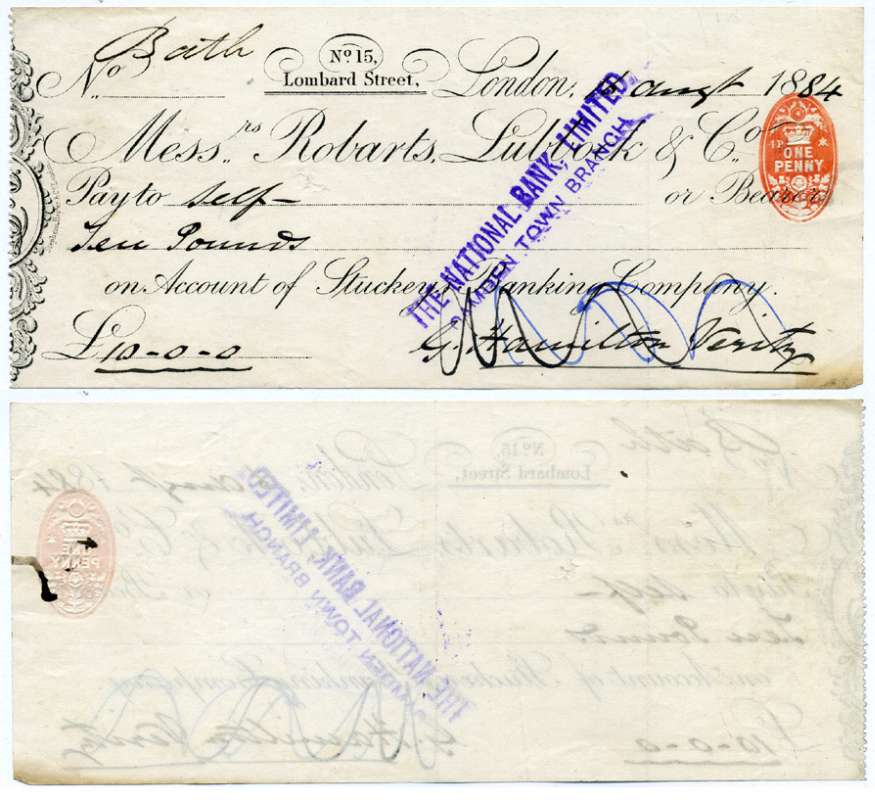 No. Bath
No. 15,
Lombard Street,
London, augst 1884
Messrs. Robarts, Lubbock & Co.
1P
ONE
PENNY
Pay to self — or Bearer
Ten Pounds
on Account of Stuckeys Banking Company.
£10-0-0
G. Hamilton Verity
THE NATIONAL BANK, LIMITED,
CAMDEN TOWN BRANCH